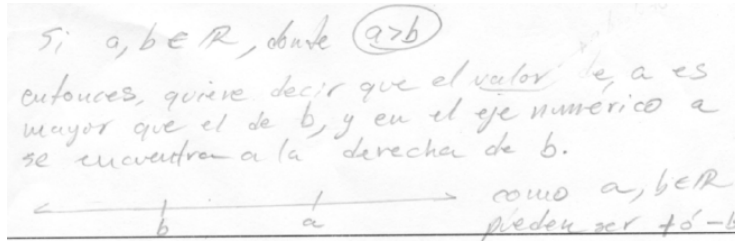 Si a, b ∈ ℝ, donde a>b
entonces, quiere decir que el valor de, a es
mayor que el de b, y en el eje numérico a
se encuentra a la derecha de b.
como a, b ∈ ℝ
b a
pueden ser + ó -